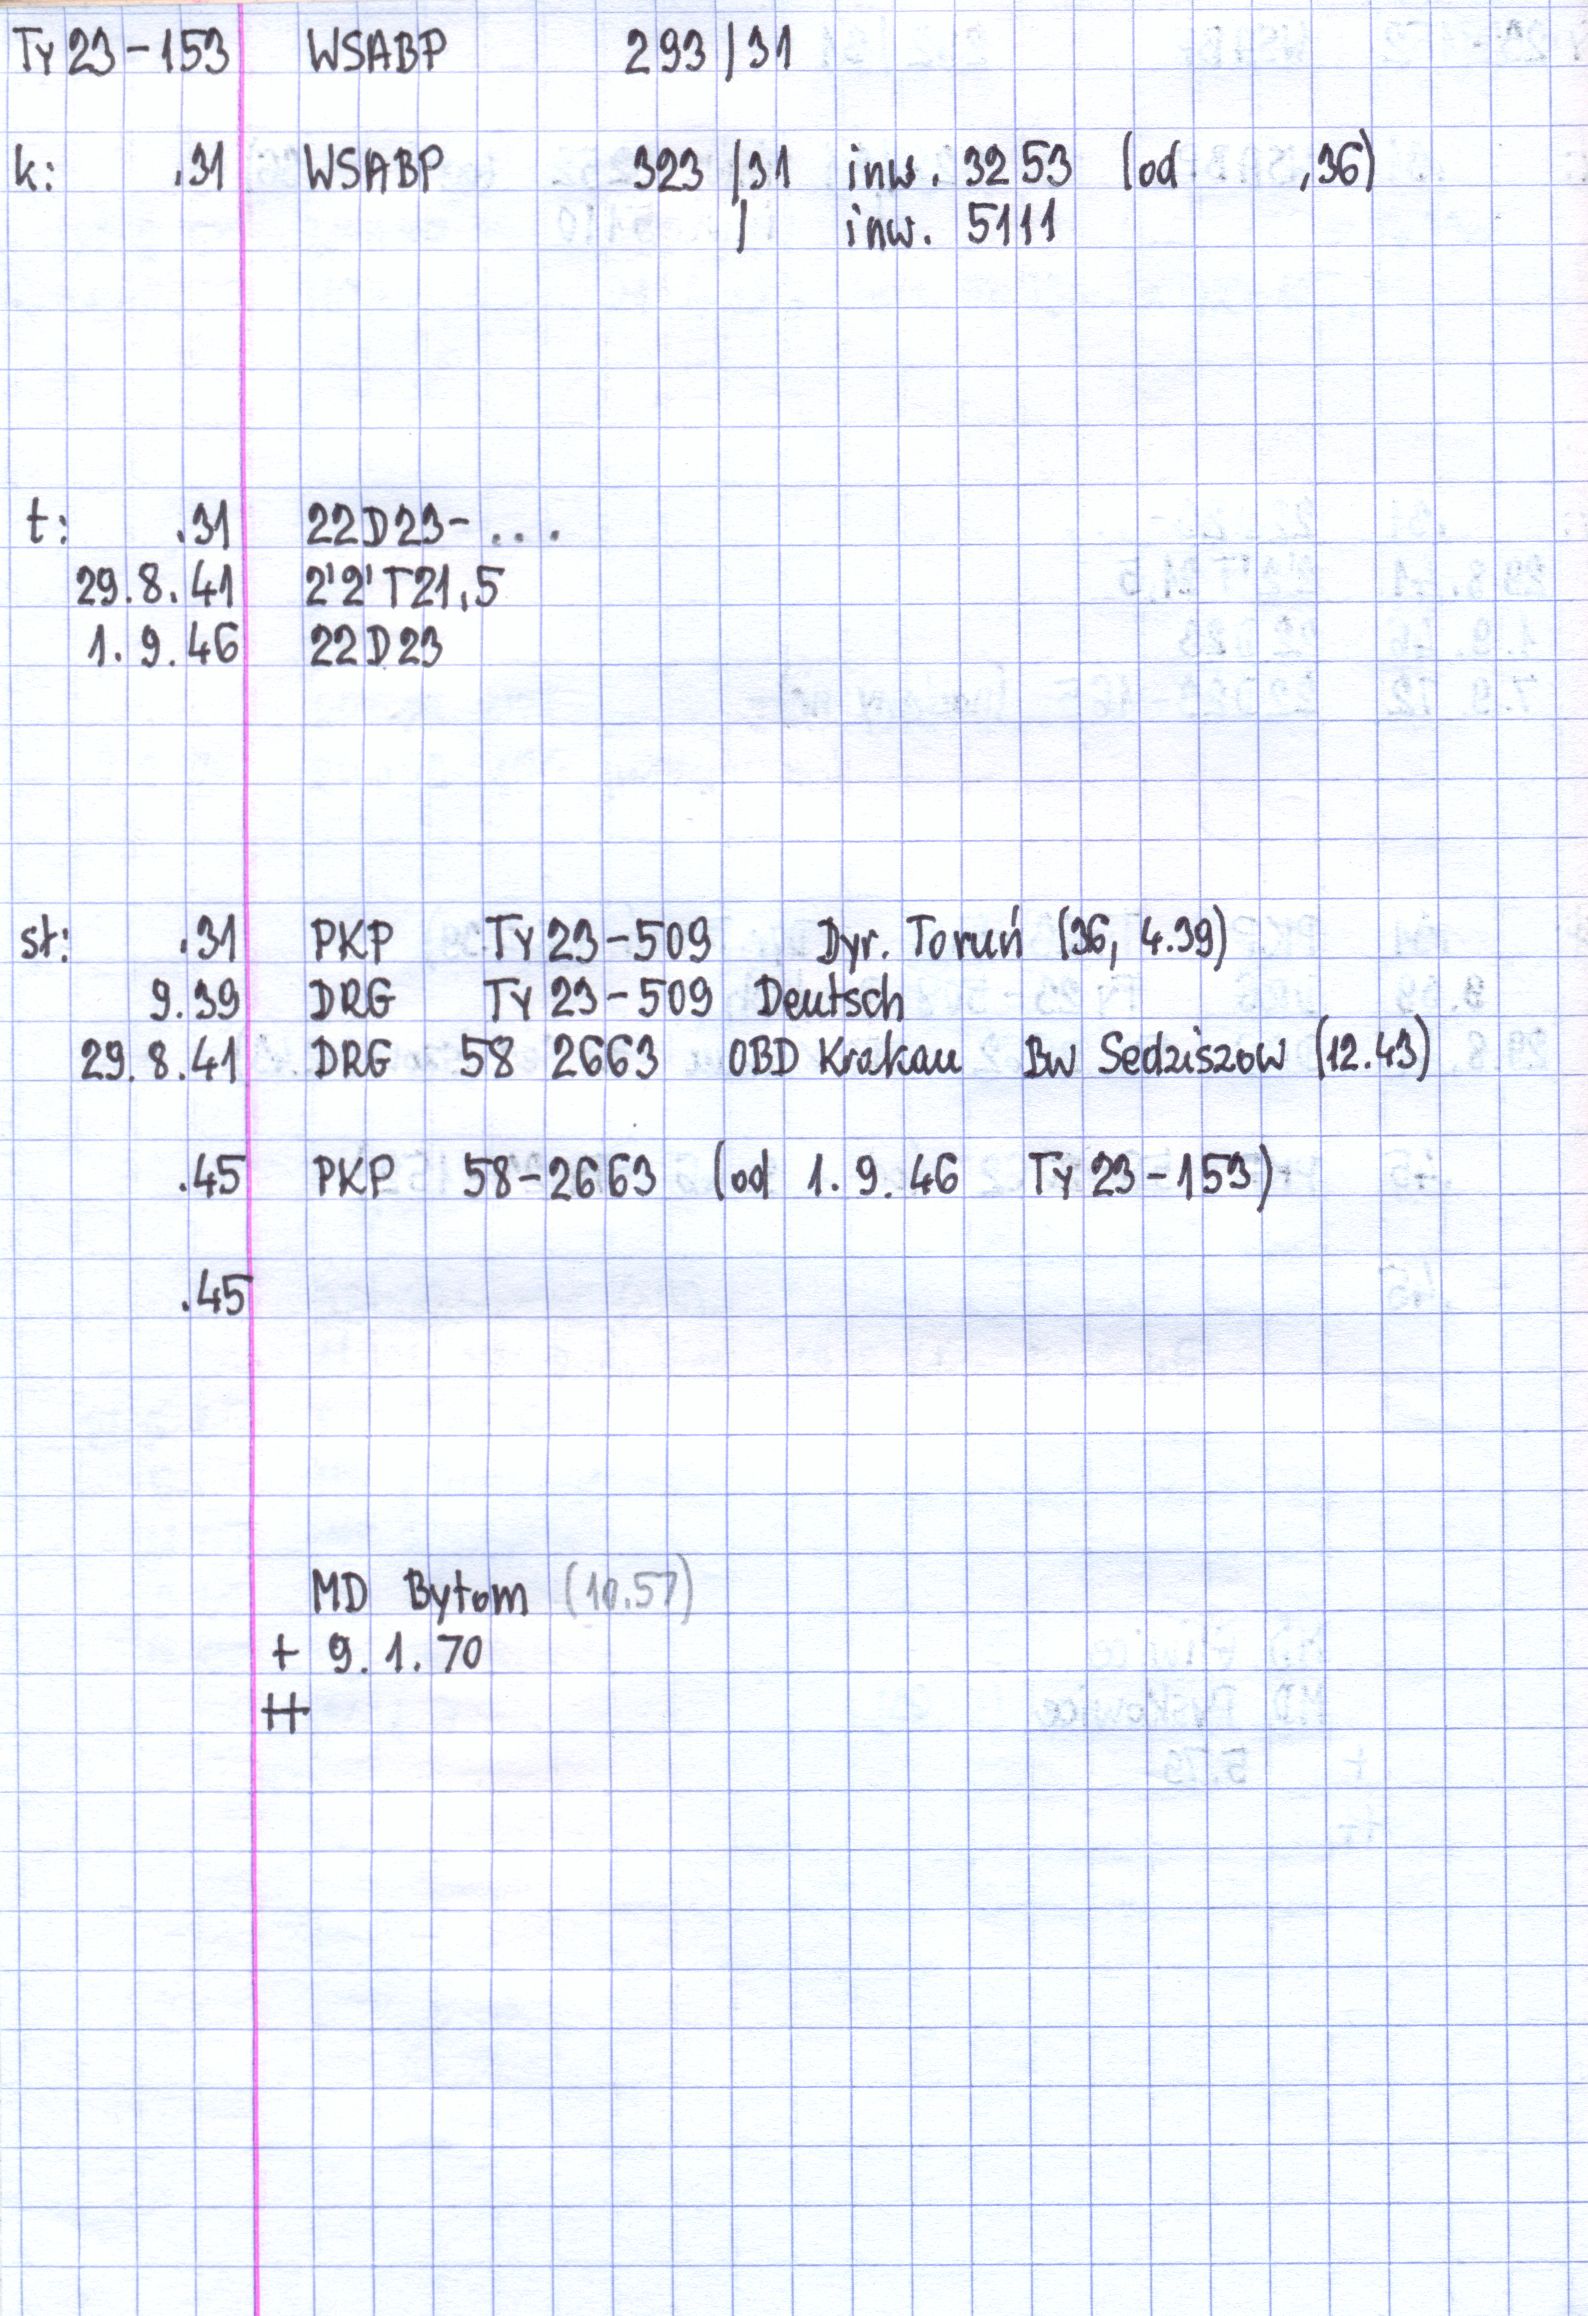 Ty 23-153 WSABP 293/31
k: .31 WSABP 323/31 inw. 3253 (od ,36)
/ inw. 5111
t: .31 22D23-...
29.8.41 2'2'T21,5
1.9.46 22D23
st: .31 PKP Ty 23-509 Dyr. Toruń (36, 4.39)
9.39 DRG Ty 23-509 Deutsch
29.8.41 DRG 58 2663 OBD Krakau Bw Sedziszow (12.43)
.45 PKP 58-2663 (od 1.9.46 Ty 23-153)
.45
MD Bytom (10.57)
+ 9.1.70
++